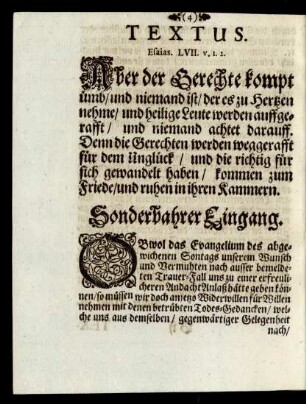 (4)
TEXTUS.
Esaias. LVII. v. 1. 2.
Aber der Gerechte kompt
umb/und niemand ist/der es zu Hertzen
nehme/ und heilige Leute werden auffge-
rafft/ und niemand achtet darauff.
Denn die Gerechten werden weggerafft
für dem Unglück/ und die richtig für
sich gewandelt haben/ kommen zum
Friede/und ruhen in ihren Kammern.
Sonderbahrer Eingang.
OBwol das Evangelium des abge-
wichenen Sontags unserem Wunsch
und Vermuhten nach ausser bemelde-
ten Trauer-Fall uns zu einer erfreuli-
cheren Andacht Anlaß hätte geben kön-
nen/so müssen wir doch anietzo Widerwillen für Willen
nehmen mit denen betrübten Todes-Gedancken/ wel-
che uns aus demselben/ gegenwärtiger Gelegenheit
nach/